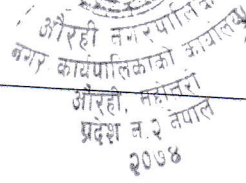 औरही नगरपालिका
नगर कार्यपालिकाको कार्यालय
औरही, महोत्तरी
प्रदेश नं. २ नेपाल
२०७४